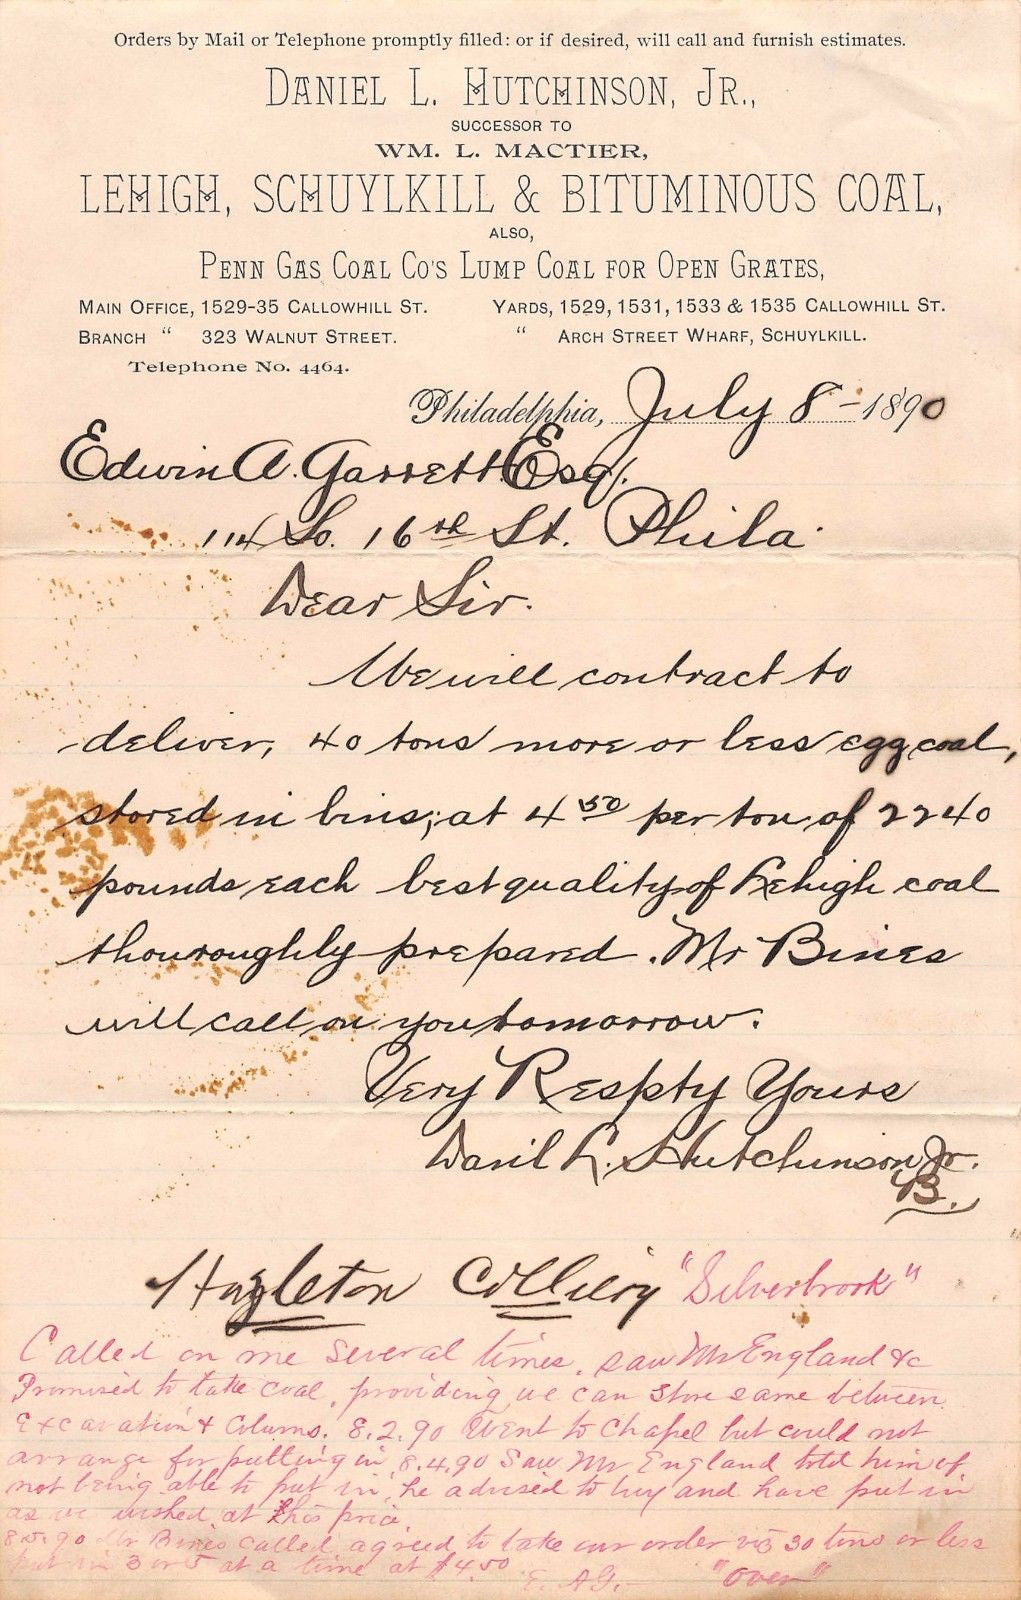 Orders by Mail or Telephone promptly filled: or if desired, will call and furnish estimates.
DANIEL L. HUTCHINSON, JR.,
SUCCESSOR TO
WM. L. MACTIER,
LEHIGH, SCHUYLKILL & BITUMINOUS COAL,
ALSO,
PENN GAS COAL CO'S LUMP COAL FOR OPEN GRATES,
MAIN OFFICE, 1529-35 CALLOWHILL ST. YARDS, 1529, 1531, 1533 & 1535 CALLOWHILL ST.
BRANCH " 323 WALNUT STREET. " ARCH STREET WHARF, SCHUYLKILL.
Telephone No. 4464.
Philadelphia, July 8 - 1890
Edwin A. Garrett Esq.
114 So. 16th St. Phila.
Dear Sir.
We will contract to
deliver, 40 tons more or less egg coal,
stored in bins, at 4 50 per ton of 2240
pounds each best quality of Lehigh coal
thouroughly prepared. Mr Bines
will call on you tomorrow.
Very Respty Yours
Danil L. Hutchinson Jr.
B.
Hazleton Colliery "Silverbrook"
Called on me several times, saw Mr England &c
Promised to take coal, providing we can store same between
Excavation & Colums. 8.2.90 Went to Chapel but could not
arrange for putting in, 8.4.90 Saw Mr England told him of
not being able to put in, he advised to buy and have put in
as we wished at this price
8.5.90 Mr Bines called, agreed to take our order viz 30 tons or less
put in 3 or 5 at a time at $4.50 E. A G. - "over"